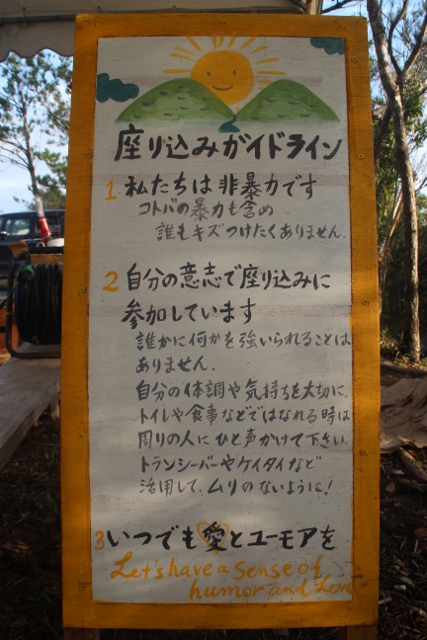 座り込みガイドライン
1 私たちは非暴力です
コトバの暴力も含め
誰もキズつけたくありません.
2 自分の意志で座り込みに
参加しています
誰かに何かを強いられることは
ありません.
自分の体調や気持ちを大切に.
トイレや食事などではなれる時は
周りの人にひと声かけて下さい.
トランシーバーやケイタイなど
活用して、ムリのないように!
3 いつでも愛とユーモアを
Let's have a sense of
humor and Love